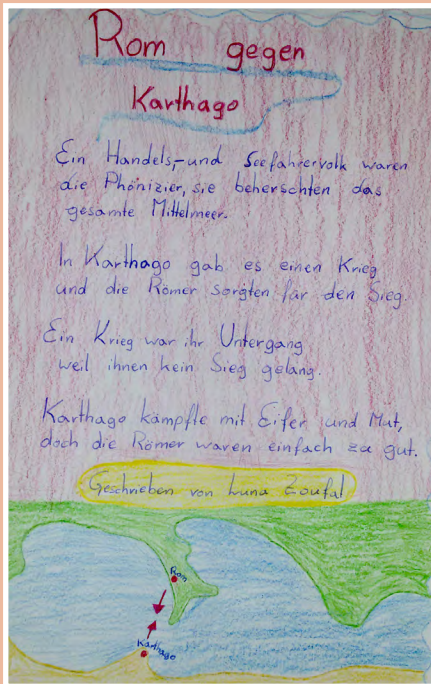 Rom gegen
Karthago
Ein Handels,-und Seefahrervolk waren
die Phönizier, sie beherschten das
gesamte Mittelmeer.
In Karthago gab es einen Krieg
und die Römer sorgten für den Sieg.
Ein Krieg war ihr Untergang
weil ihnen kein Sieg gelang.
Karthago kämpfte mit Eifer und Mut,
doch die Römer waren einfach zu gut.
Geschrieben von Luna Zoufal
Rom
Karthago